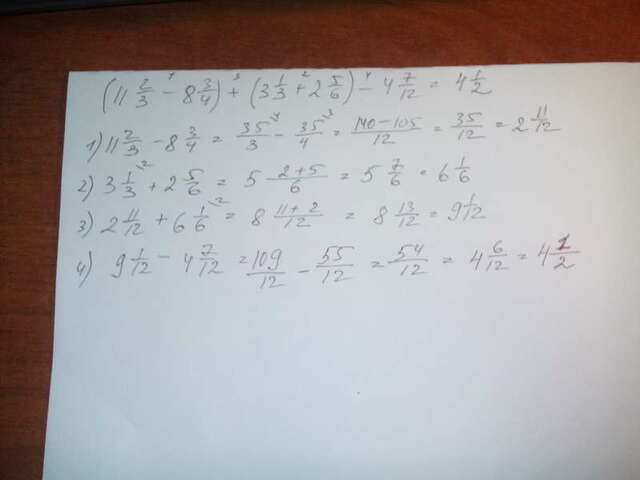 (11 2/3 - 8 3/4) + (3 1/3 + 2 5/6) - 4 7/12 = 4 1/2
1) 11 2/3 - 8 3/4 = 35/3 - 35/4 = 140-105/12 = 35/12 = 2 11/12
2) 3 1/3 + 2 5/6 = 5 2+5/6 = 5 7/6 = 6 1/6
3) 2 11/12 + 6 1/6 = 8 11+2/12 = 8 13/12 = 9 1/12
4) 9 1/12 - 4 7/12 = 109/12 - 55/12 = 54/12 = 4 6/12 = 4 1/2